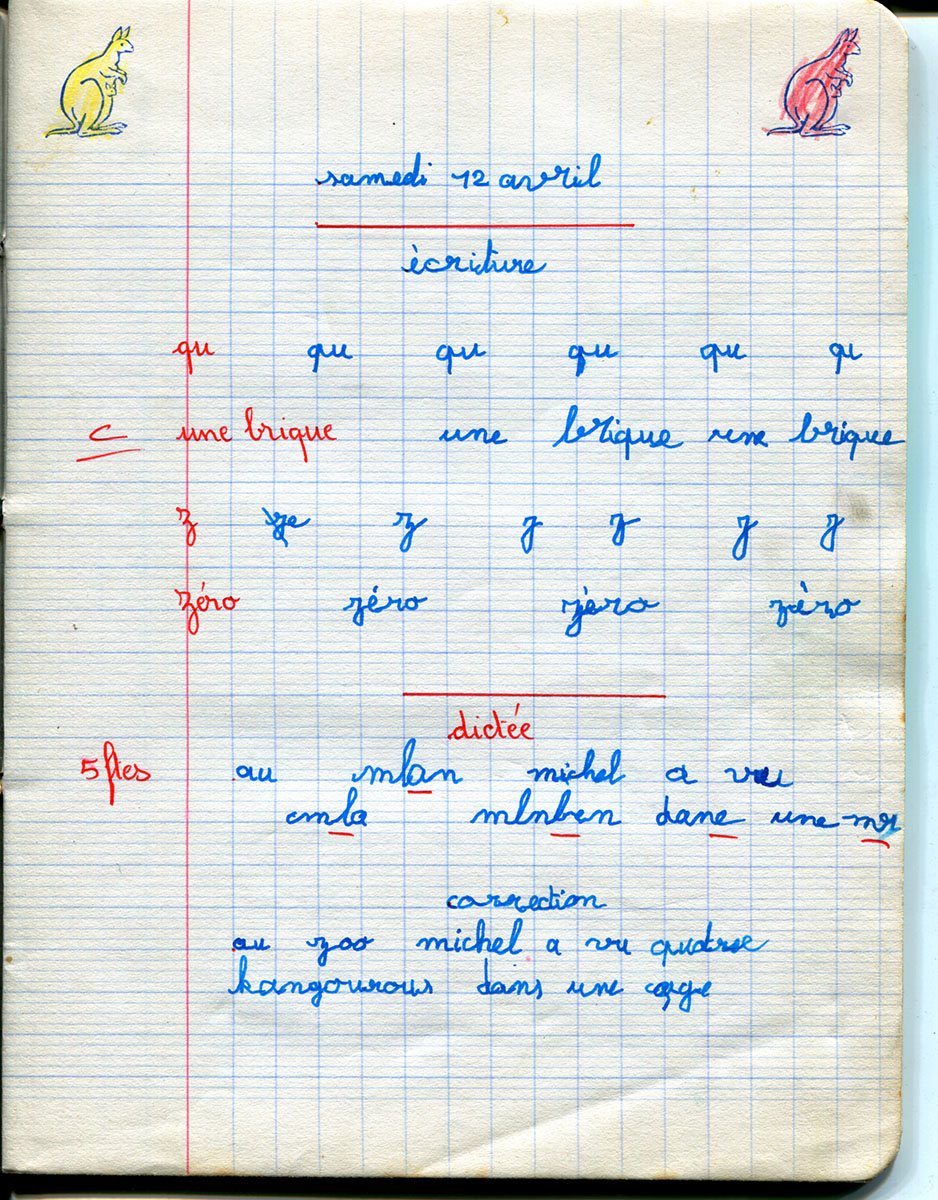 samedi 12 avril
écriture
qu qu qu qu qu qu
C une brique une brique une brique
z ze z z z z z
zéro zéro zéro zéro
dictée
5 ftes au mlan michel a vu
cmla mlnben dane une mr
correction
au zoo michel a vu quatre
kangourous dans une cage